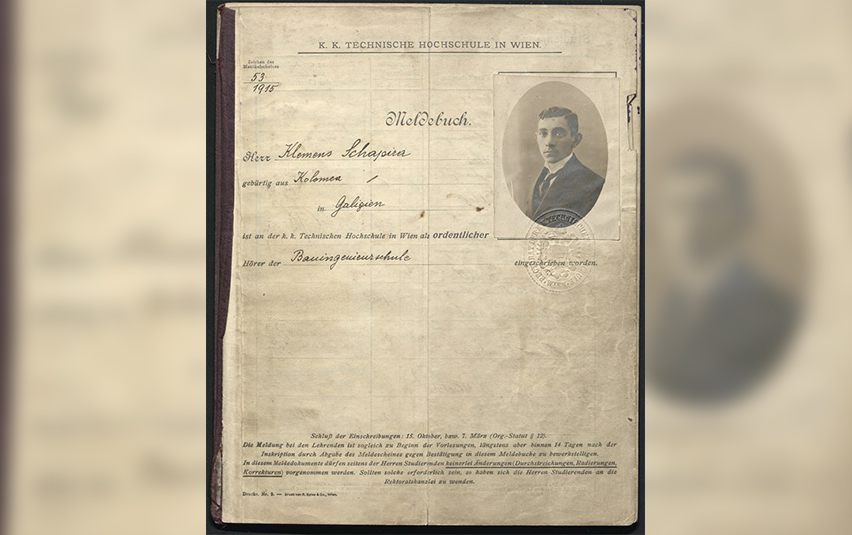 K. K. TECHNISCHE HOCHSCHULE IN WIEN.
Zeichen des
Matrikelscheines
53
1915
Meldebuch.
Herr Klemens Schapira
gebürtig aus Kolomea
in Galizien
ist an der k. k. Technischen Hochschule in Wien als ordentlicher
Hörer der Bauingenieurschule eingeschrieben worden.
Schluß der Einschreibungen: 15. Oktober, bzw. 7. März (Org.-Statut § 12).
Die Meldung bei den Lehrenden ist sogleich zu Beginn der Vorlesungen, längstens aber binnen 14 Tagen nach der
Inskription durch Abgabe des Meldescheines gegen Bestätigung in diesem Meldebuche zu bewerkstelligen.
In diesem Meldedokumente dürfen seitens der Herren Studierenden keinerlei Änderungen (Durchstreichungen, Radierungen,
Korrekturen) vorgenommen werden. Sollten solche erforderlich sein, so haben sich die Herren Studierenden an die
Rektoratskanzlei zu wenden.
Drucks. Nr. 9. — Druck von & Co., Wien.